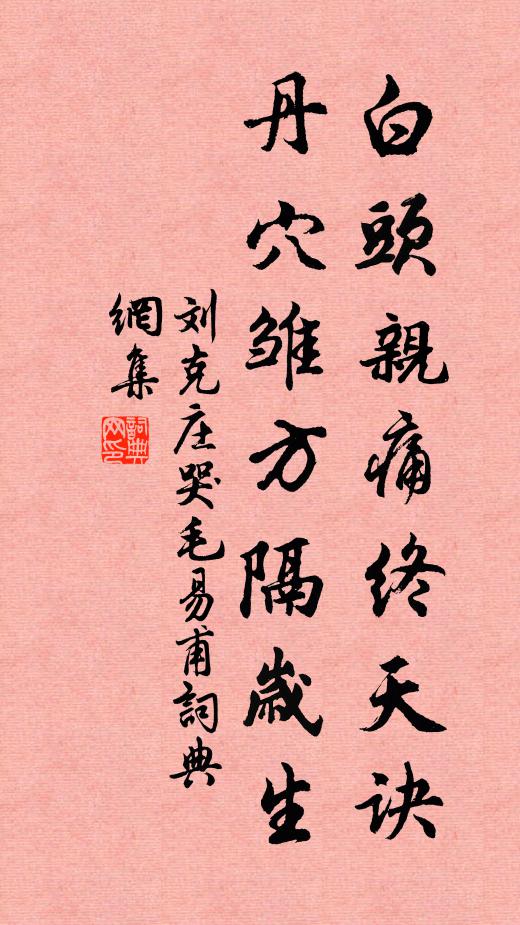 白頭親痛終天訣
丹穴雏方隔歲生
刘克庄哭毛易甫詞典
網集
詞典
网印